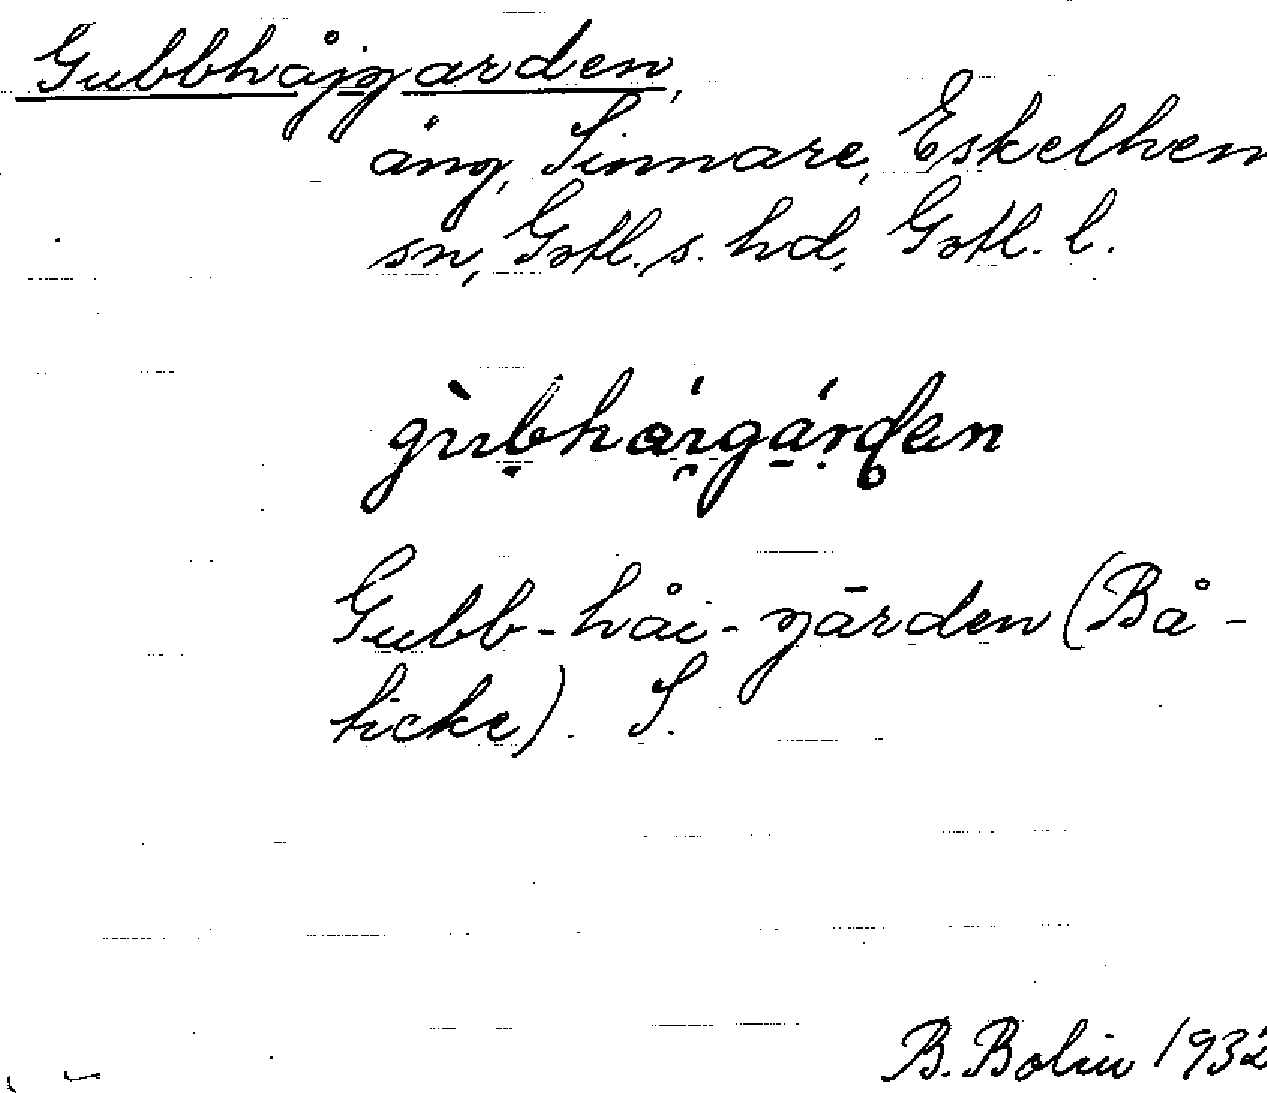 Gubbhåjgarden,
äng, Sinnare, Eskelhem
sn, Gotl. s. hd, Gotl. l.
gùbhái̯gá̱rden
Gubb-håi-gārden (Bå-
ticke). S.
B. Bolin 1932